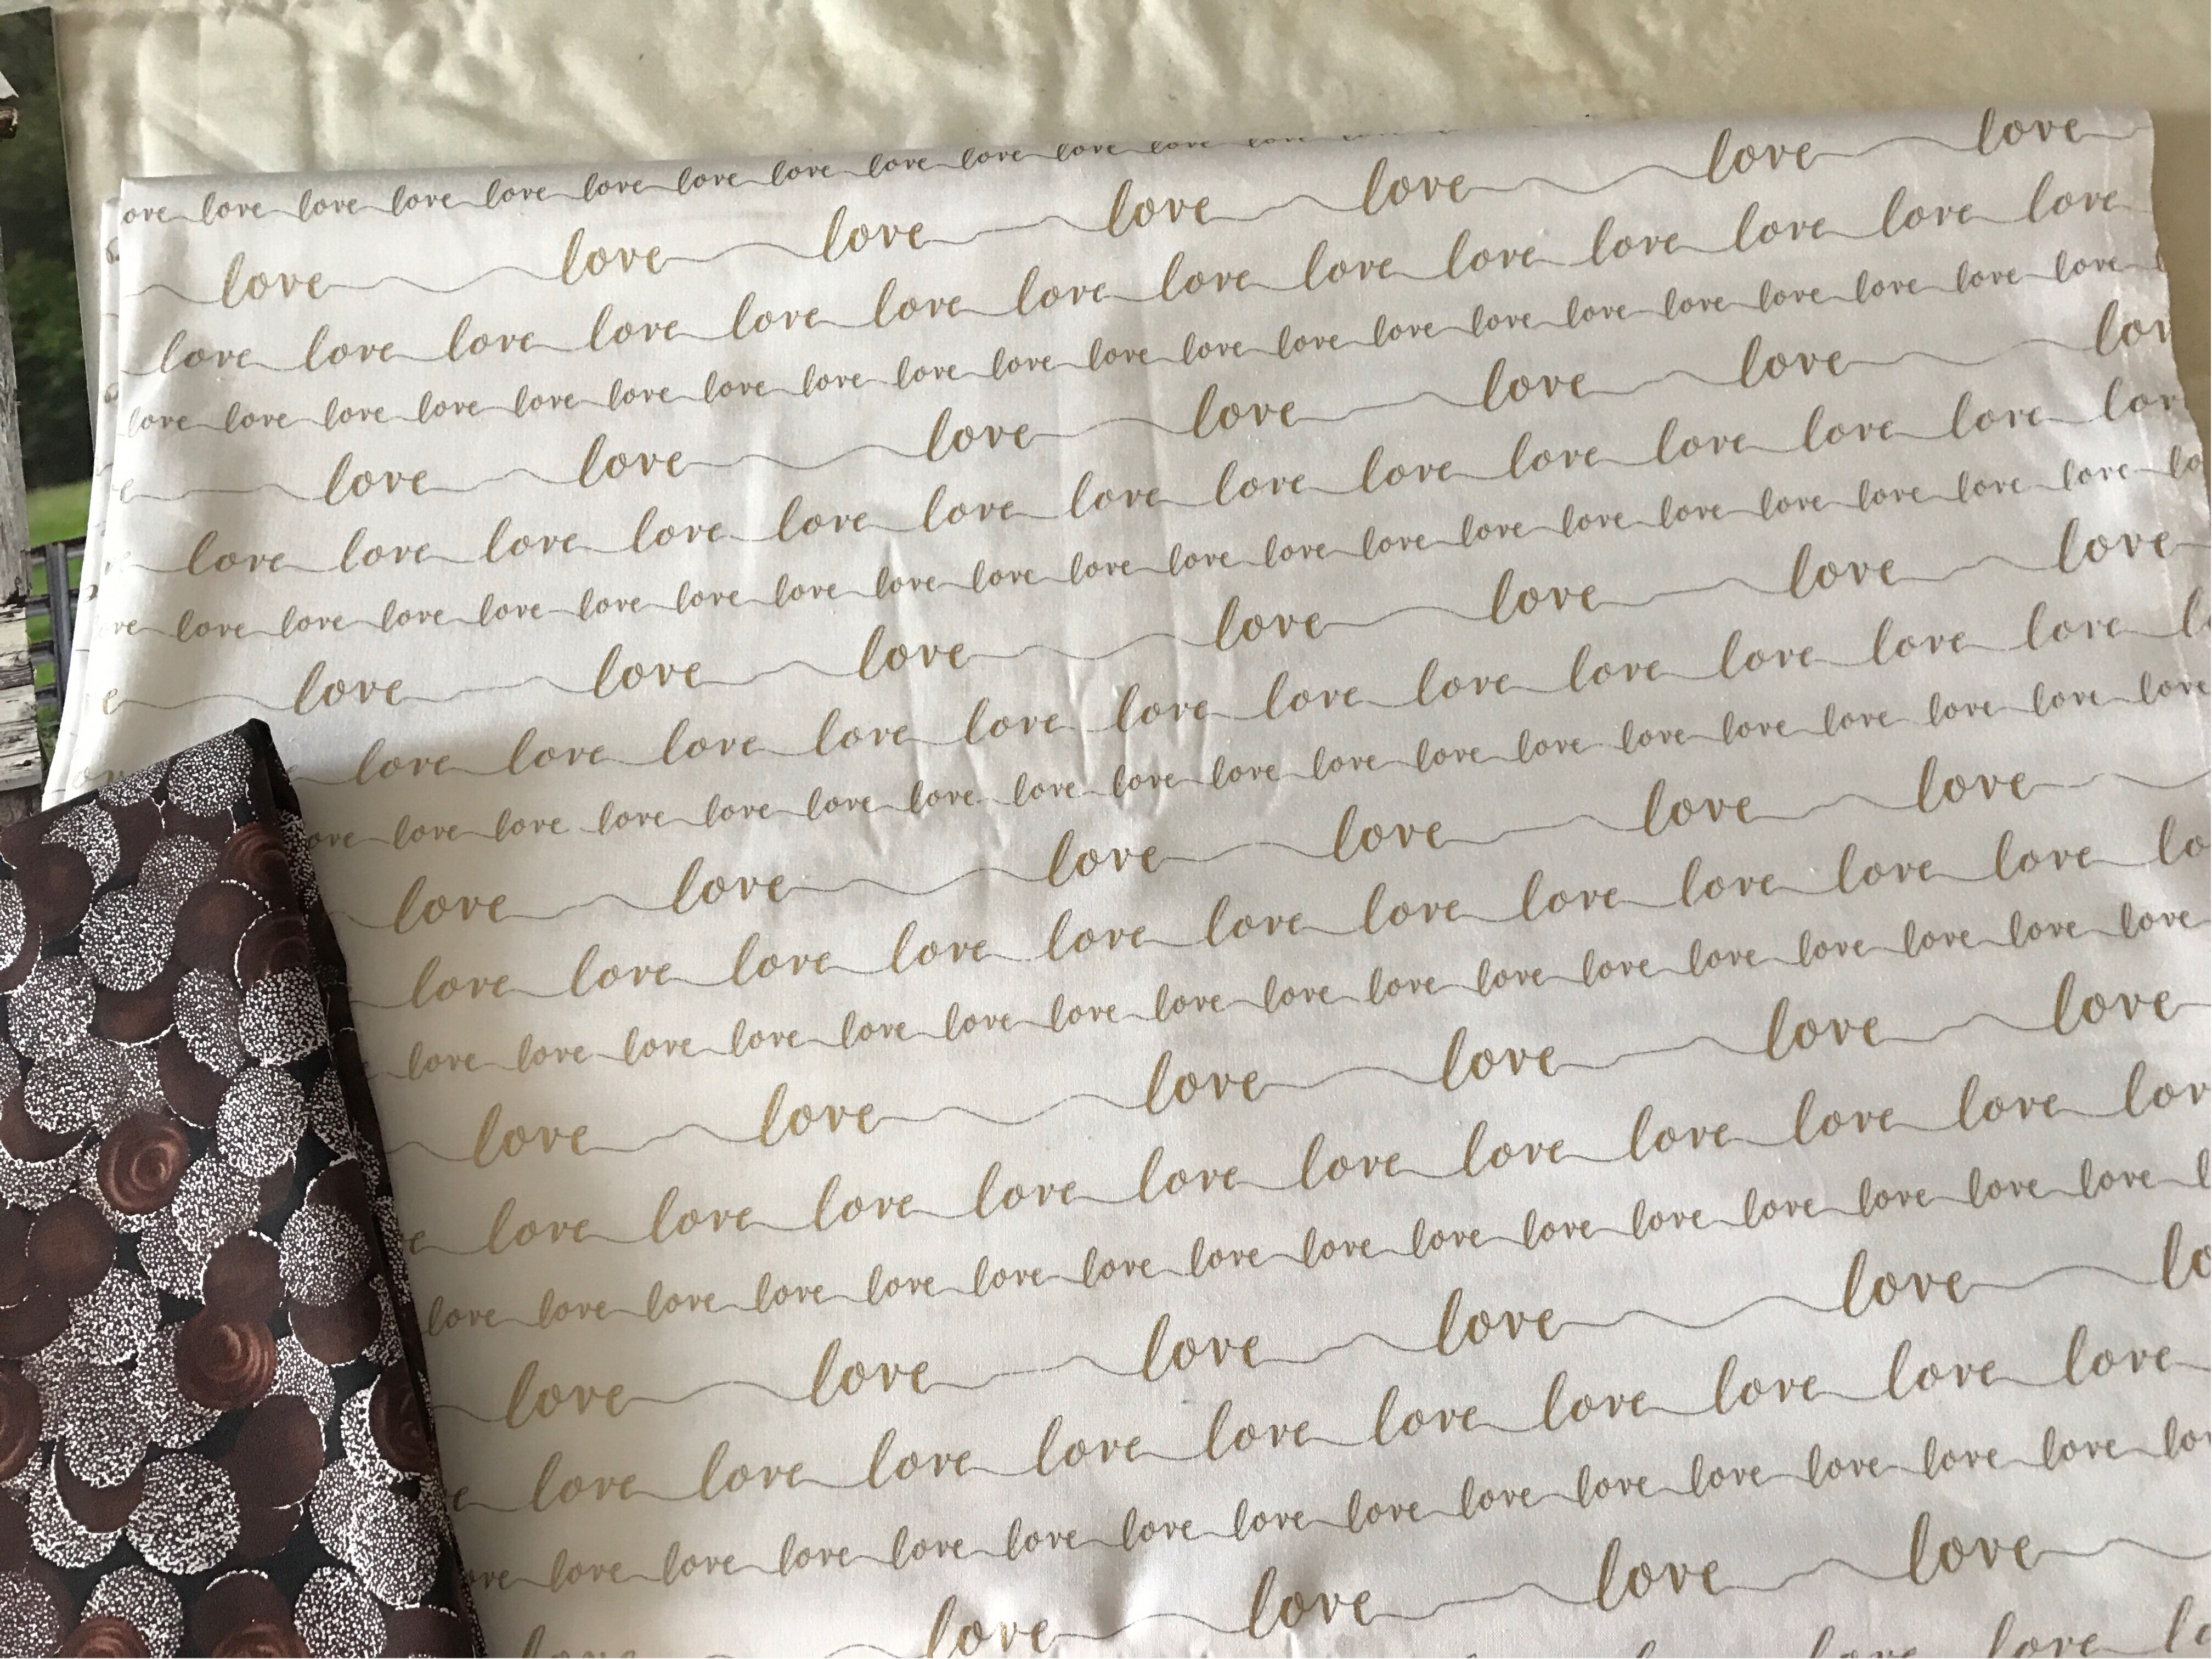 love love love love love love love love love love
love love love love love love love
love love love love love love love love love love love love love love
love love love love love love love love love love love love love love love love love love love love love
love love love love love love lov
love love love love love love love love love love love love love lov
re love love love love love love love love love love love love love love love love love love love love lo
e love love love love love love love
love love love love love love love love love love love love
ore love love love love love love love love love love love love love love love love love love
love love love love love love
love love love love love love love love love love love lo
love love love love love love love love love love love love love love love love love
love love love love love love
e love love love love love love love love love love lov
love love love love love love love love love love love love love love love love
love love love love love lo
e love love love love love love love love love love
ore love love love love love love love love love love love love love lov
love love love love
love